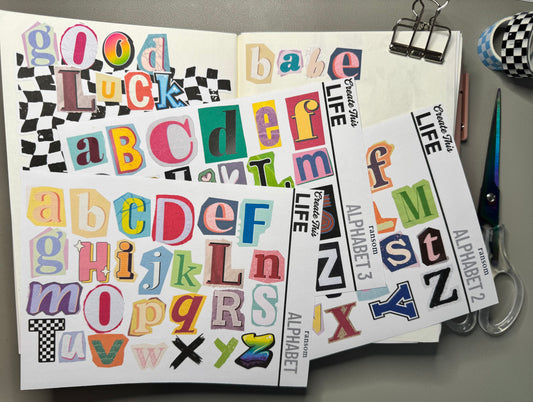 gOOd
LUcK
babe
aBCdef
m
Create This
LIFE
ALPHABET 3
f
M
St
Z
XY
Create This
LIFE
ransom
ALPHABET 2
abCDeF
gHijkLn
mOpqRS
Tuvwxyz
Create This
LIFE
ransom
ALPHABET